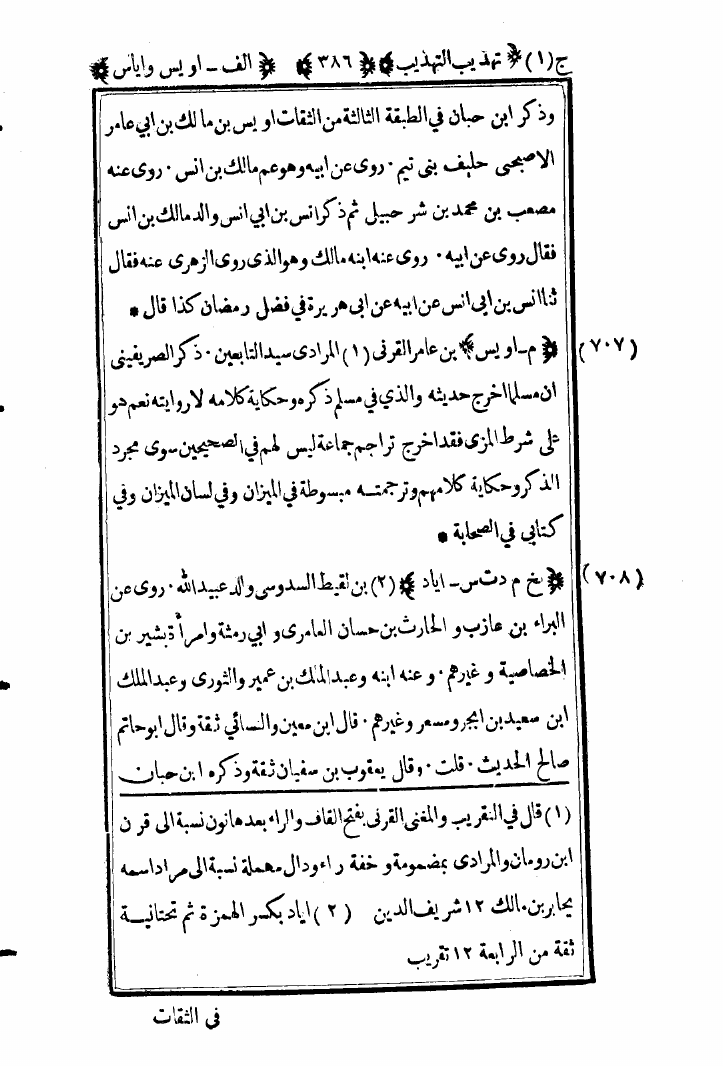 ج(١) ﴿ تهذيب التهذيب ﴾ ﴿ ٣٨٦ ﴾ ﴿ الف ـ اويس واياس ﴾
وذكر ابن حبان في الطبقة الثالثة من الثقات اويس بن مالك بن ابي عامر
الاصبحى حليف بنى تيم ٠ روى عن ابيه وهو عم مالك بن انس ٠ روى عنه
مصعب بن محمد بن شرحبيل ثم ذكر انس بن ابي انس والد مالك بن انس
فقال روى عن ابيه ٠ روى عنه ابنه مالك وهو الذى روى الزهرى عنه فقال
ثنا انس بن ابى انس عن ابيه عن ابى هريرة في فضل رمضان كذا قال *
(٧٠٧) ﴿ م ـ اويس ﴾ بن عامر القرنى (١) المرادى سيد التابعين ٠ ذكر الصريفينى
ان مسلما اخرج حديثه والذي في مسلم ذكره وحكاية كلامه لا روايته نعم هو
على شرط المزى فقد اخرج تراجم جماعة ليس لهم في الصحيحين سوى مجرد
الذكر وحكاية كلامهم وترجمته مبسوطة في الميزان وفي لسان الميزان وفي
كتابى في الصحابة *
(٧٠٨) ﴿ بخ م د ت س ـ اياد ﴾ (٢) بن لقيط السدوسى والد عبيد الله ٠ روى عن
البراء بن عازب و الحارث بن حسان العامرى و ابي رمثة وامرأة بشير بن
الخصاصية و غيرهم ٠ و عنه ابنه وعبد الملك بن عمير والثورى وعبد الملك
ابن سعيد بن ابجر ومسعر وغيرهم ٠ قال ابن معين والنسائي ثقة وقال ابو حاتم
صالح الحديث ٠ قلت ٠ وقال يعقوب بن سفيان ثقة وذكره ابن حبان
(١) قال في التقريب والمغنى القرنى بفتح القاف والراء بعدها نون نسبة الى قرن
ابن رومان والمرادى بمضمومة و خفة راء ودال مهملة نسبة الى مراد اسمه
يحابر بن مالك ١٢ شريف الدين (٢) اياد بكسر الهمزة ثم تحتانية
ثقة من الرابعة ١٢ تقريب
فى الثقات